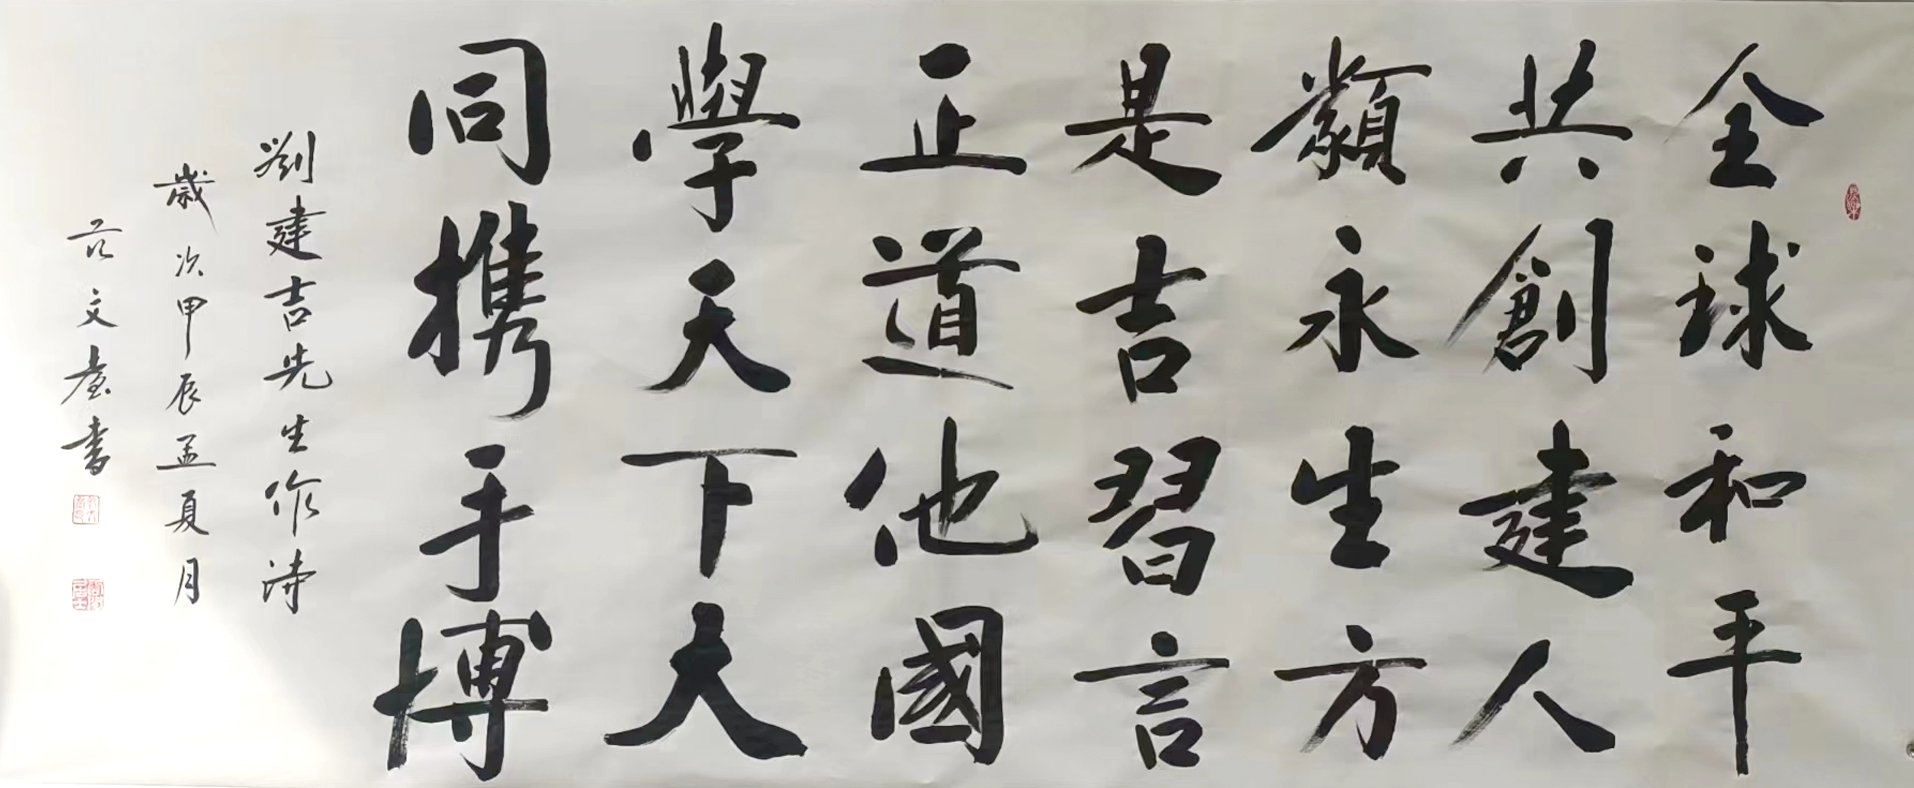 全球和平
共創建人
類永生方
是吉習言
正道他國
學天下大
同携手博
劉建吉先生作詩
歲次甲辰孟夏月
文臺書